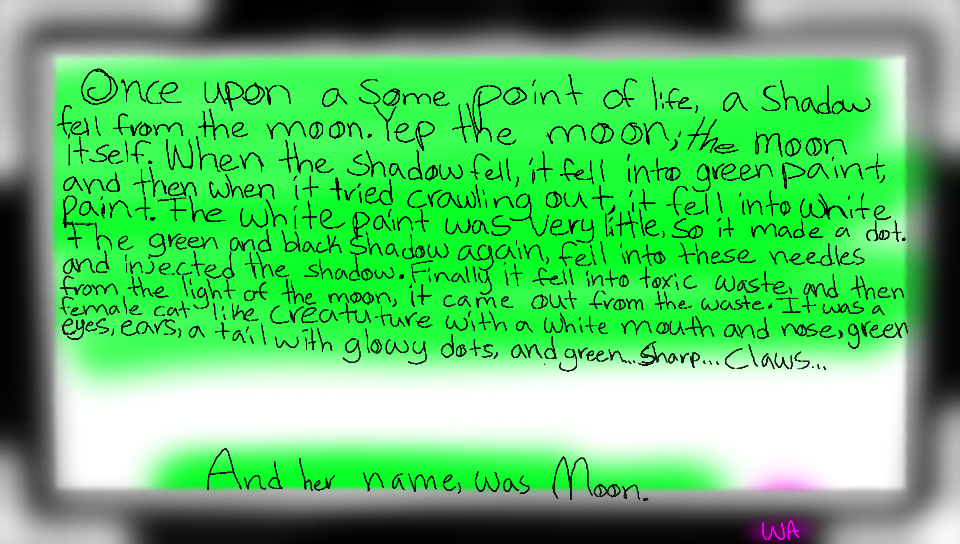 Once upon a some point of life, a shadow
fell from the moon. Yep the moon, the moon
itself. When the shadow fell, it fell into green paint,
and then when it tried crawling out, it fell into white
paint. The white paint was very little, so it made a dot.
The green and black shadow again, fell into these needles
and injected the shadow. Finally it fell into toxic waste, and then
from the light of the moon, it came out from the waste. It was a
female cat like creatuture with a white mouth and nose, green
eyes, ears, a tail with glowy dots, and green... sharp... claws...
And her name, was Moon.
WA